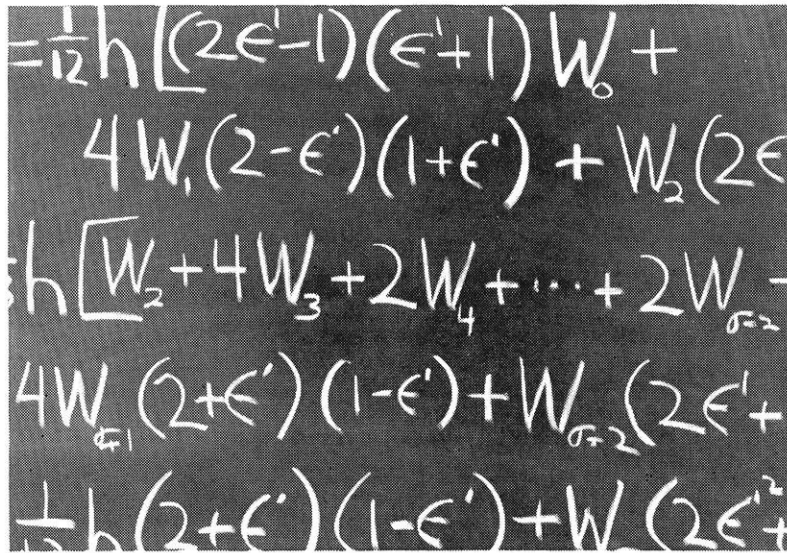 = 1/12 h[(2ϵ'-1)(ϵ'+1)W₀ +
4W₁(2-ϵ')(1+ϵ') + W₂(2ϵ
h[W₂ + 4W₃ + 2W₄ + ··· + 2W_σ-2
4W_σ-1(2+ϵ')(1-ϵ') + W_σ-2(2ϵ' +
h(2+ϵ')(1-ϵ') + W (2ϵ'² +